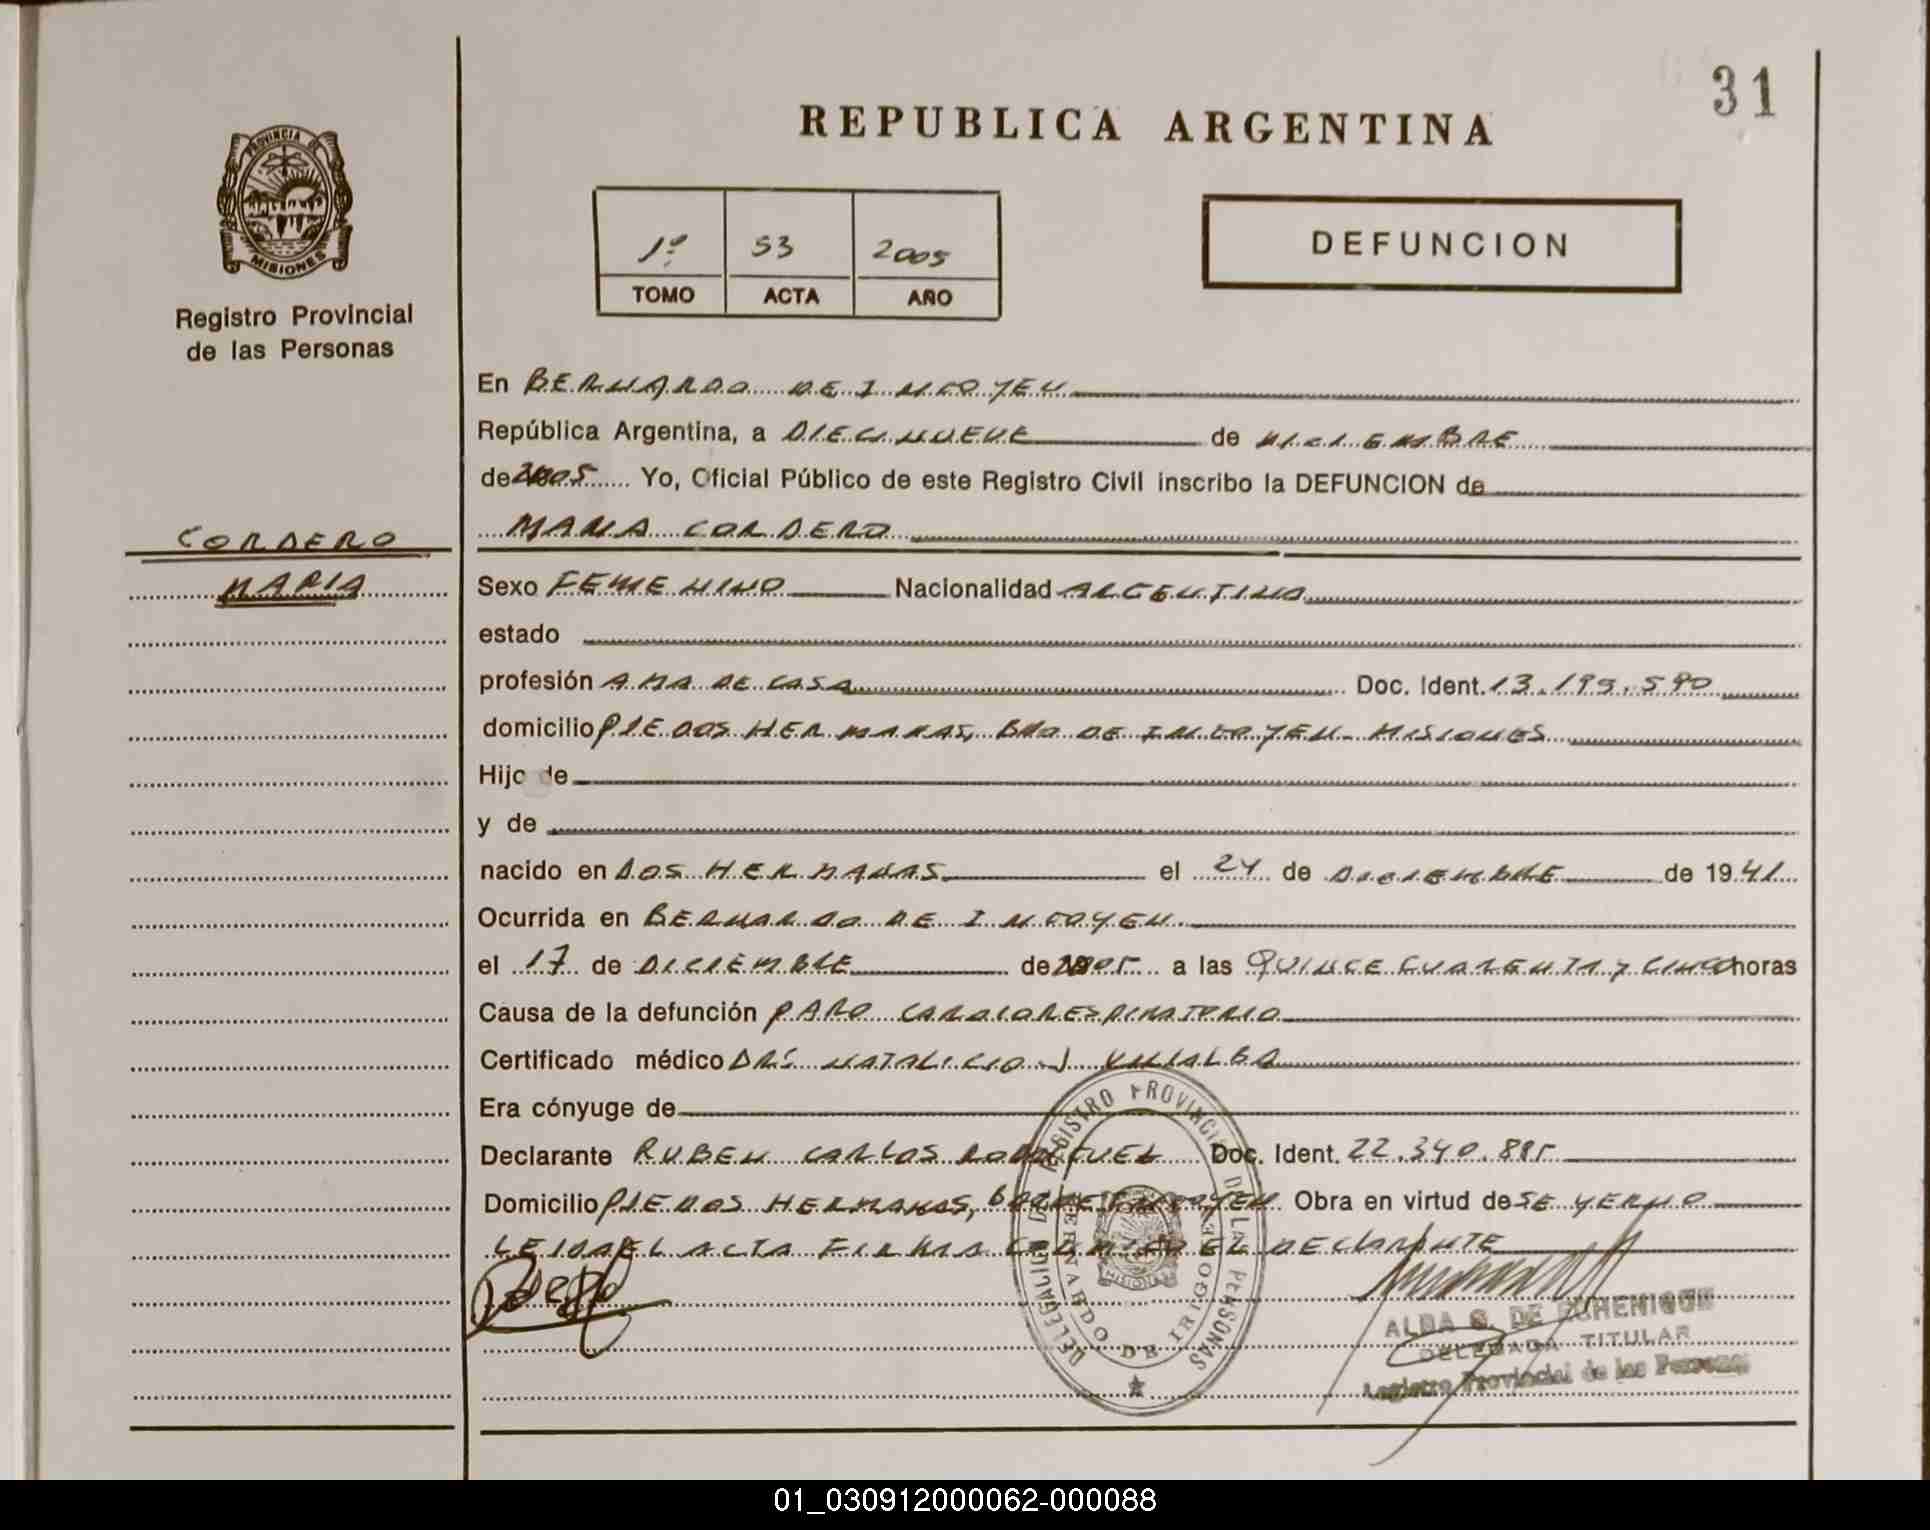 31
REPUBLICA ARGENTINA
PROVINCIA DE
MISIONES
Registro Provincial
de las Personas
1º 53 2005
TOMO ACTA AÑO
DEFUNCION
En BERNARDO DE IRIGOYEN
República Argentina, a DIECINUEVE de DICIEMBRE
de 2005 Yo, Oficial Público de este Registro Civil inscribo la DEFUNCION de
CORDERO
MARIA CORDERO
MARIA
Sexo FEMENINO Nacionalidad ARGENTINA
estado
profesión AMA DE CASA Doc. Ident. 13.195.590
domicilio PJE DOS HERMANAS, BDO DE IRIGOYEN - MISIONES
Hijo de
y de
nacido en DOS HERMANAS el 24 de DICIEMBRE de 1941
Ocurrida en BERNARDO DE IRIGOYEN
el 17 de DICIEMBRE de 2005 a las QUINCE CUARENTA Y CINCO horas
Causa de la defunción PARO CARDIORESPIRATORIO
Certificado médico DR: NATALICIO J VILLALBA
Era cónyuge de
Declarante RUBEN CARLOS RODRIGUEZ Doc. Ident. 22.340.885
Domicilio PJE DOS HERMANAS, BDO DE IRIGOYEN Obra en virtud de SE YERNO
LEIDA EL ACTA FIRMA CONMIGO EL DECLARANTE
DELEGACION DEL REGISTRO PROVINCIAL DE LAS PERSONAS
BERNARDO DE IRIGOYEN
MISIONES
ALBA G. DE ECHENIQUE
DELEGADA TITULAR
Registro Provincial de las Personas
01_030912000062-000088